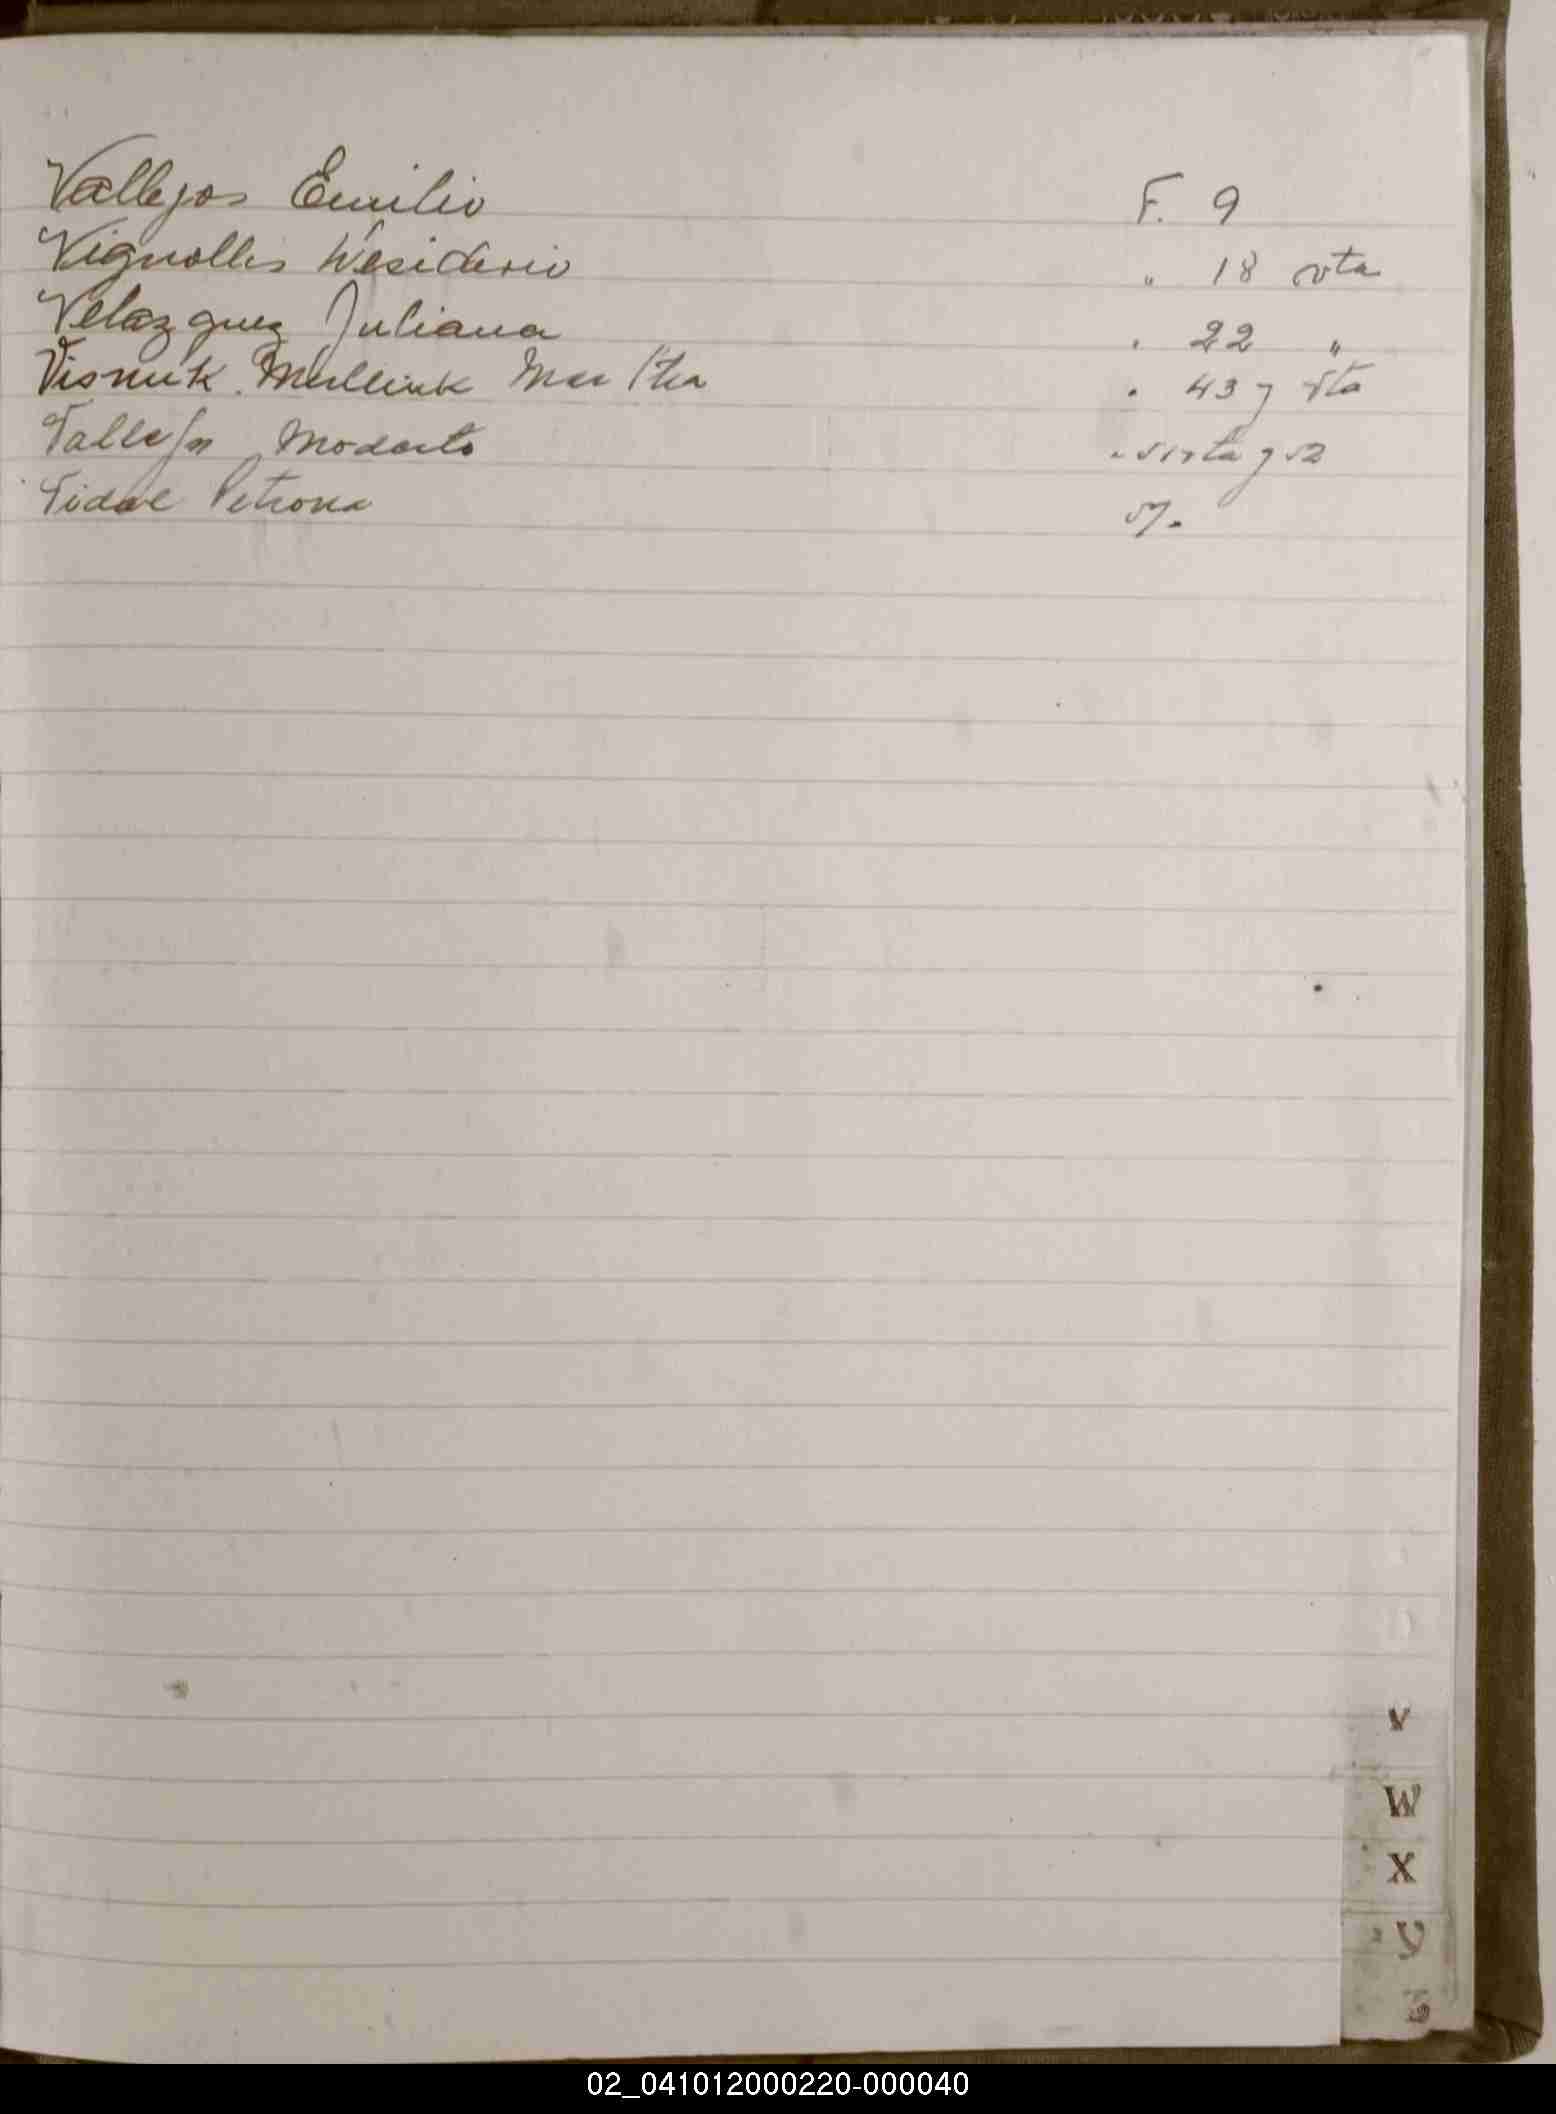 Vallejos Emilio F. 9
Vignolles Desiderio " 18 vta
Velazquez Juliana " 22 "
Visnuk Mullink Martha " 43 y vta
Vallejos Modesto " 51 vta y 52
Vidal Petrona 57.
V
W
X
Y
Z
02_041012000220-000040